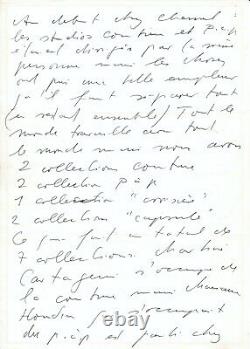 Au début chez Chanel
les studios couture et p.à.p
était dirigés par la même
personne mais les choses
ont pris une telle ampleur
qu'il faut séparer tout
(en restant ensemble) Tout le
monde travaille avec tout
le monde mais nous avons
2 collections couture
2 collection p.à.p
1 collection "croisière"
2 collections "capsule"
Ce qui fait un total de
7 collections. Martine
Cartegini s'occupe de
la couture mais
qui s'occupait
du p.à.p est parti chez